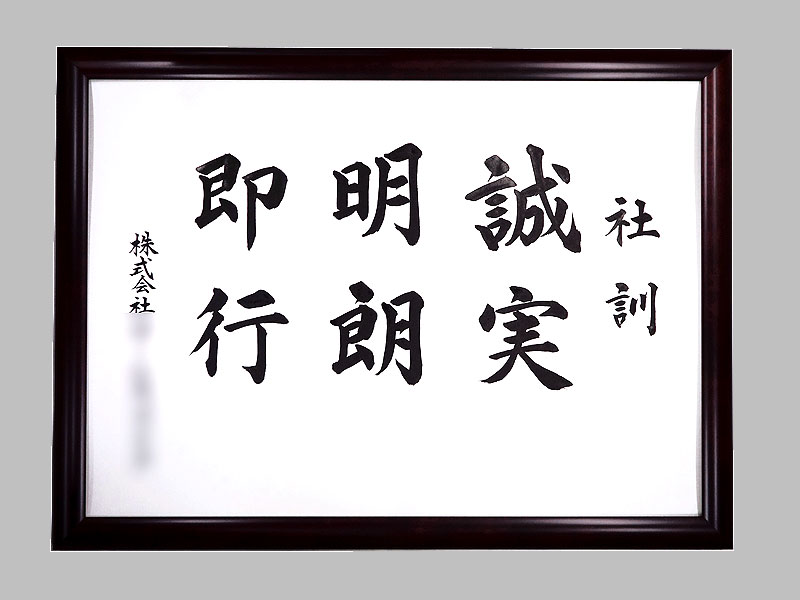 社訓
誠実
明朗
即行
株式会社